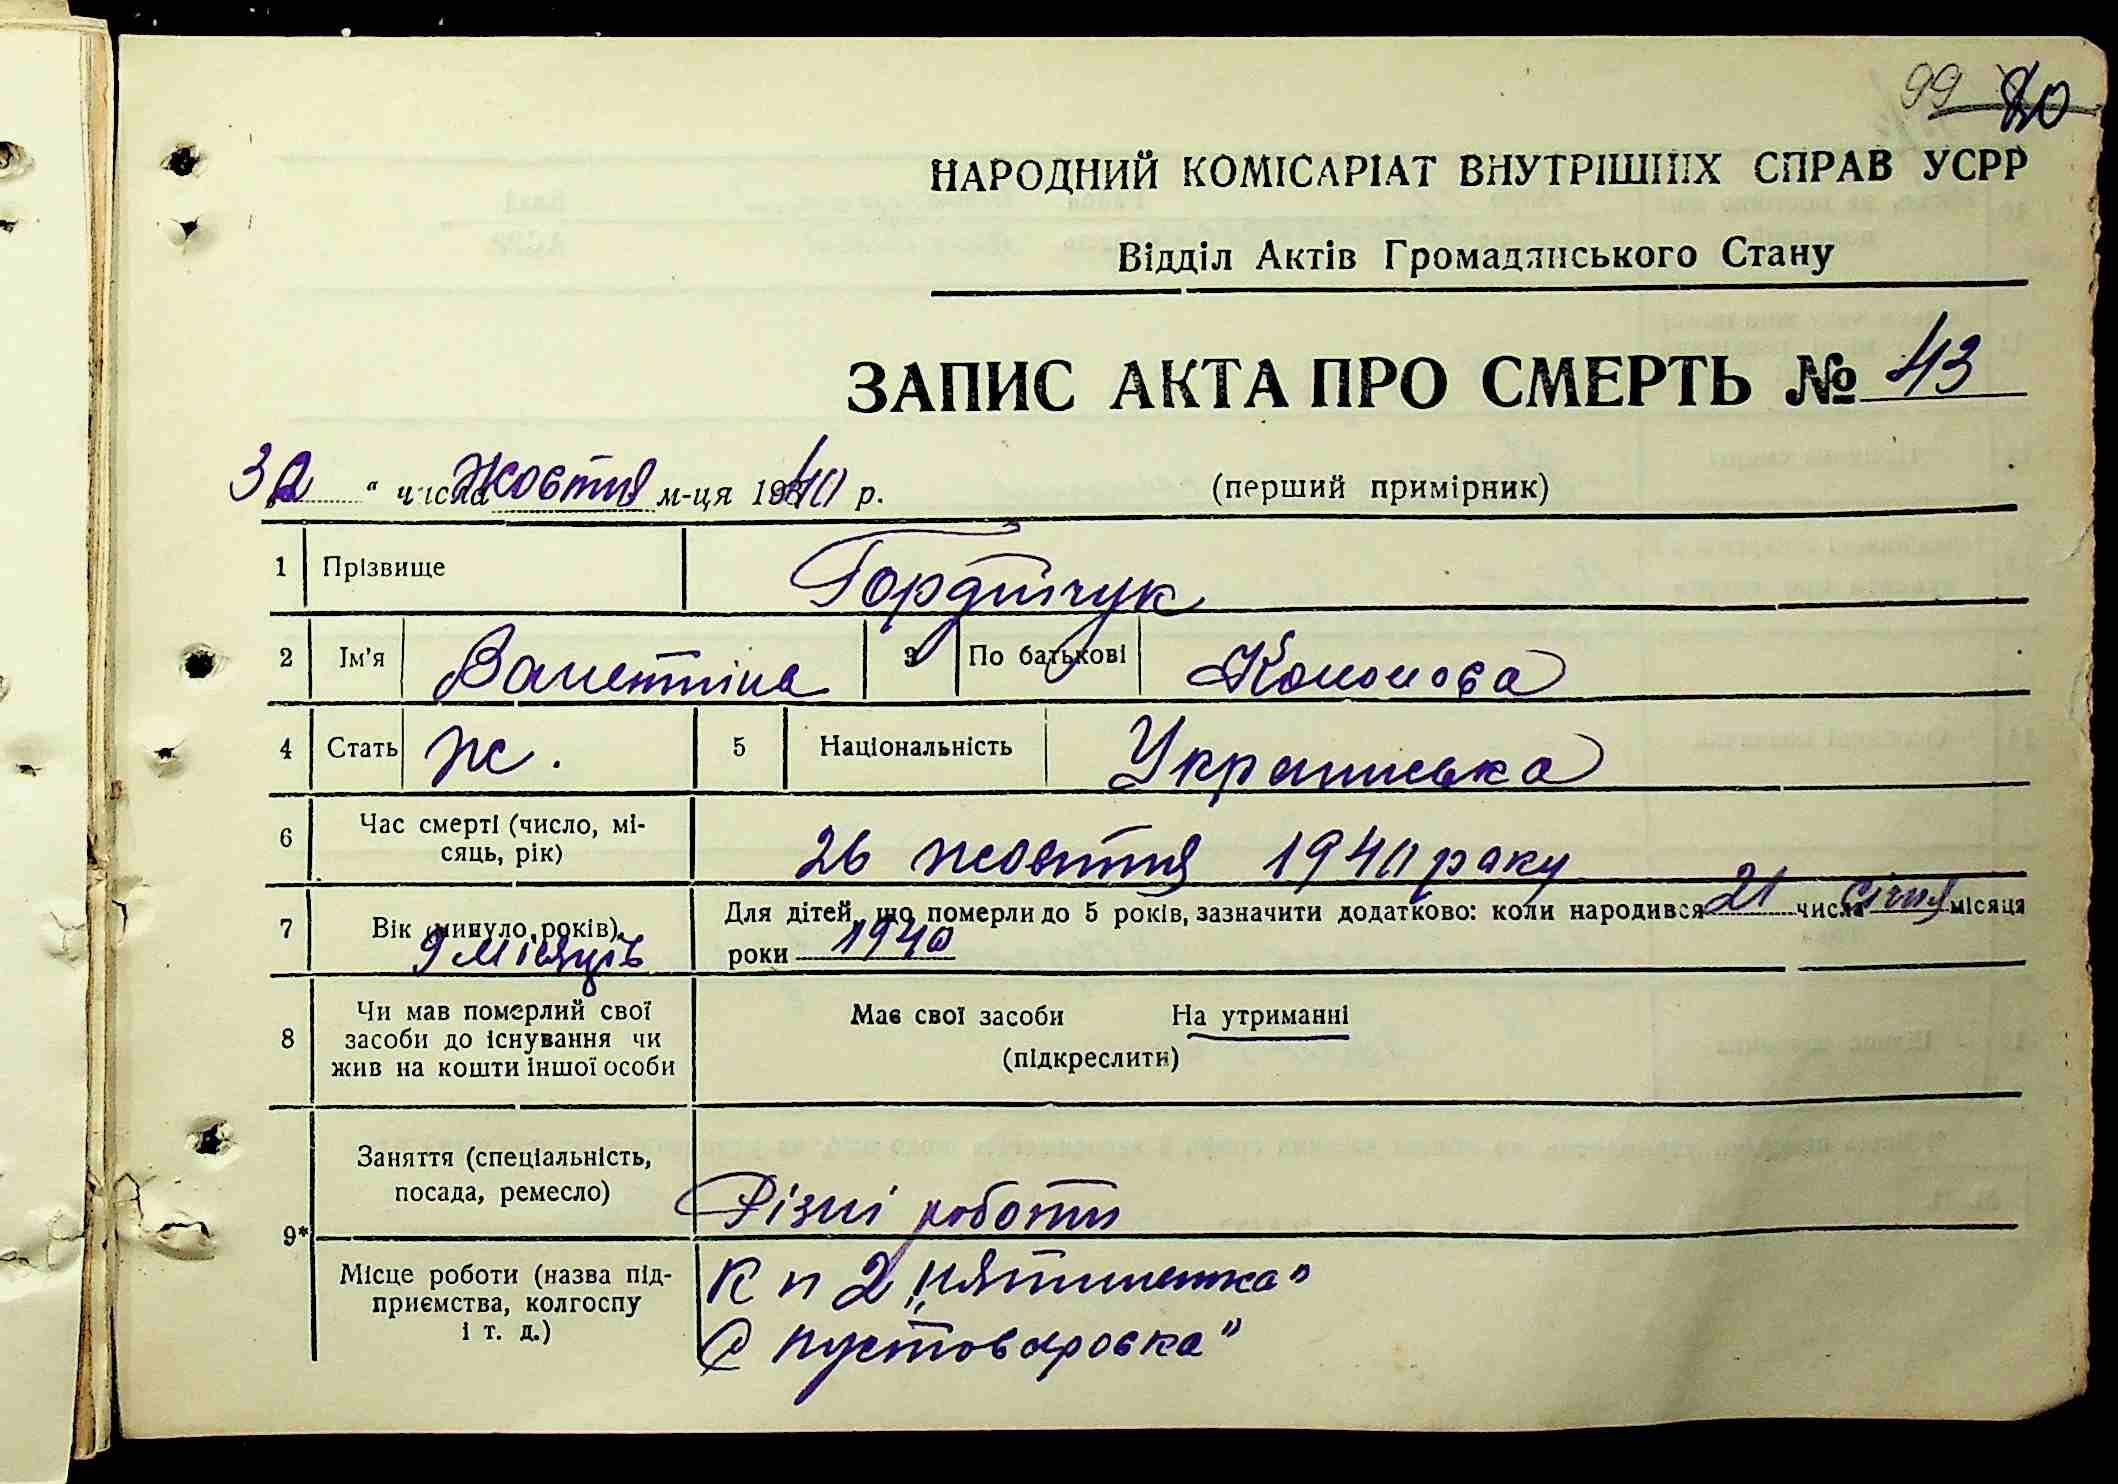 99 80
НАРОДНИЙ КОМІСАРІАТ ВНУТРІШНІХ СПРАВ УСРР
Відділ Актів Громадянського Стану
ЗАПИС АКТА ПРО СМЕРТЬ № 43
30 " числа Жовтня м-ця 1940 р. (перший примірник)
1 Прізвище Гордійчук
2 Ім'я Валентіна 3 По батькові Кононова
4 Стать ж. 5 Національність Українська
6 Час смерті (число, мі-
сяць, рік) 26 жовтня 1940 року
7 Вік (минуло років) 9 місяців Для дітей, що померли до 5 років, зазначити додатково: коли народився 21 числа січня місяця
роки 1940
8 Чи мав померлий свої
засоби до існування чи
жив на кошти іншої особи
Має свої засоби На утриманні
(підкреслити)
9* Заняття (спеціальність,
посада, ремесло) Різні роботи
Місце роботи (назва під-
приємства, колгоспу
і т. д.)
К п 2 „пятилетка"
С пустоваровка"